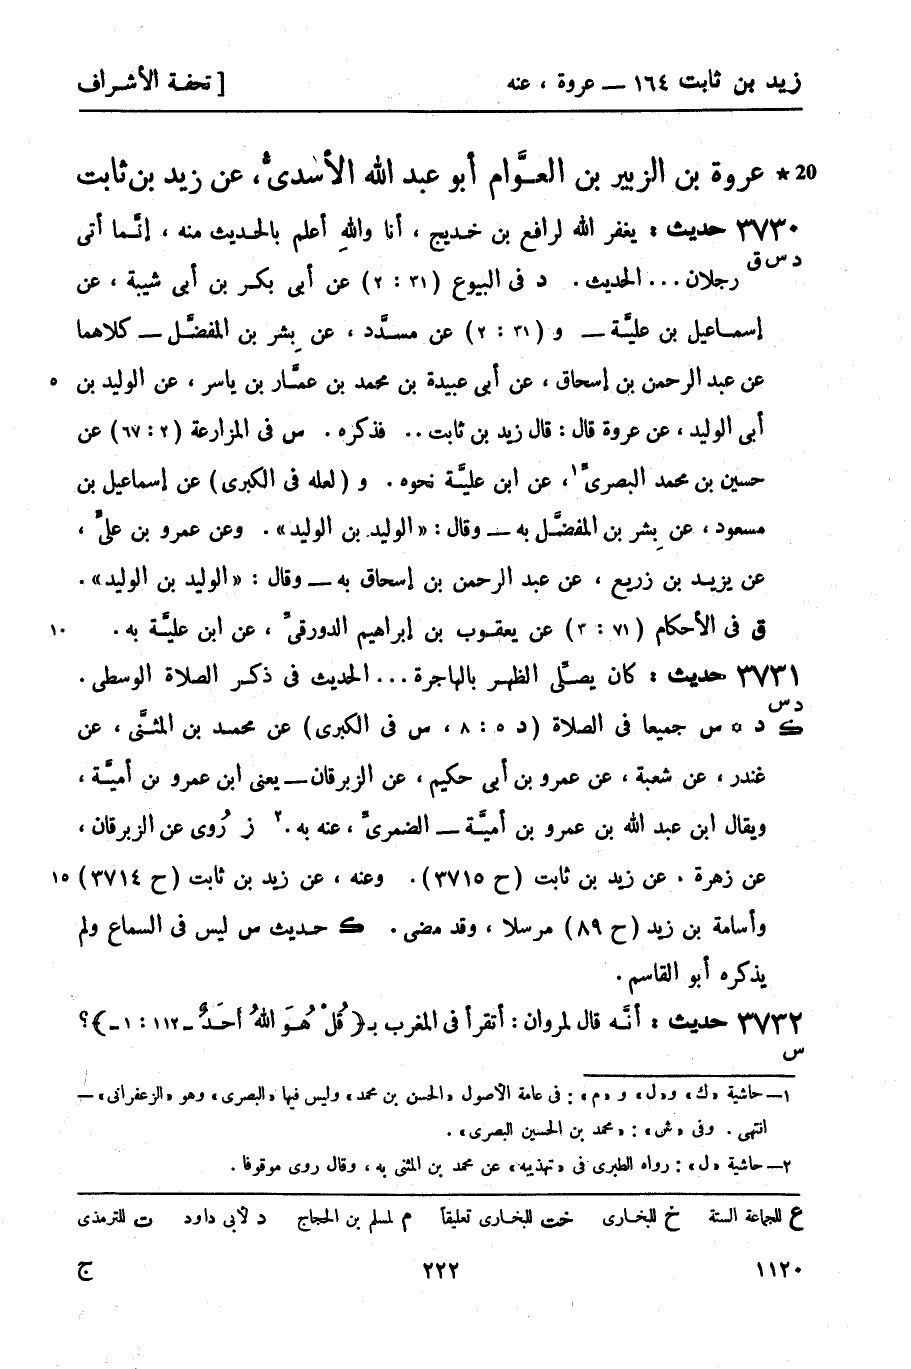 زيد بن ثابت ١٦٤ — عروة ، عنه [ تحفة الأشراف
20 * عروة بن الزبير بن العوَّام أبو عبد الله الأسدىُّ، عن زيد بن ثابت
٣٧٣٠ حديث : يغفر الله لرافع بن خديج ، أنا واللهِ أعلم بالحديث منه ، إنَّما أتى
د س ق
رجلان... الحديث . د فى البيوع (٣١ : ٢) عن أبى بكر بن أبى شيبة ، عن
إسماعيل بن عليَّة — و (٣١ : ٢) عن مسدَّد ، عن بِشر بن المفضَّل — كلاهما
عن عبد الرحمن بن إسحاق ، عن أبى عبيدة بن محمد بن عمَّار بن ياسر ، عن الوليد بن ٥
أبى الوليد ، عن عروة قال : قال زيد بن ثابت .. فذكره . س فى المزارعة (٢ : ٦٧) عن
حسين بن محمد البصرىِّ١، عن ابن عليَّة نحوه . و (لعله فى الكبرى) عن إسماعيل بن
مسعود ، عن بِشر بن المفضَّل به — وقال : «الوليد بن الوليد» . وعن عمرو بن علىٍّ ،
عن يزيد بن زريع ، عن عبد الرحمن بن إسحاق به — وقال : «الوليد بن الوليد» .
ق فى الأحكام (٧١ : ٣) عن يعقوب بن إبراهيم الدورقىِّ ، عن ابن عليَّة به . ١٠
٣٧٣١ حديث : كان يصلِّى الظهر بالهاجرة... الحديث فى ذكر الصلاة الوسطى .
د س
ك د * س جميعا فى الصلاة (د ٥ : ٨ ، س فى الكبرى) عن محمد بن المثنَّى ، عن
غندر ، عن شعبة ، عن عمرو بن أبى حكيم ، عن الزبرقان — يعنى ابن عمرو بن أميَّة ،
ويقال ابن عبد الله بن عمرو بن أميَّة — الضمرىِّ ، عنه به .٢ ز رُوى عن الزبرقان ،
عن زهرة . عن زيد بن ثابت (ح ٣٧١٥) . وعنه ، عن زيد بن ثابت (ح ٣٧١٤) ١٥
وأسامة بن زيد (ح ٨٩) مرسلا ، وقد مضى . ك حديث س ليس فى السماع ولم
يذكره أبو القاسم .
٣٧٣٢ حديث : أنَّه قال لمروان : أتقرأ فى المغرب بـ{ قُلْ هُوَ اللهُ أَحَدٌ ـ ١١٢ : ١ ـ}؟
س
١— حاشية «ك» و«ل» و «م» : فى عامة الأصول «الحسن بن محمد» وليس فيها «البصرى» وهو «الزعفرانى» —
انتهى . وفى «ش» : «محمد بن الحسين البصرى» .
٢— حاشية «ل» : رواه الطبرى فى «تهذيبه» عن محمد بن المثنى به ، وقال روى موقوفا .
ع للجماعة الستة خ للبخارى خت للبخارى تعليقاً م لمسلم بن الحجاج د لأبى داود ت للترمذى
١١٢٠ ٢٢٢ ج